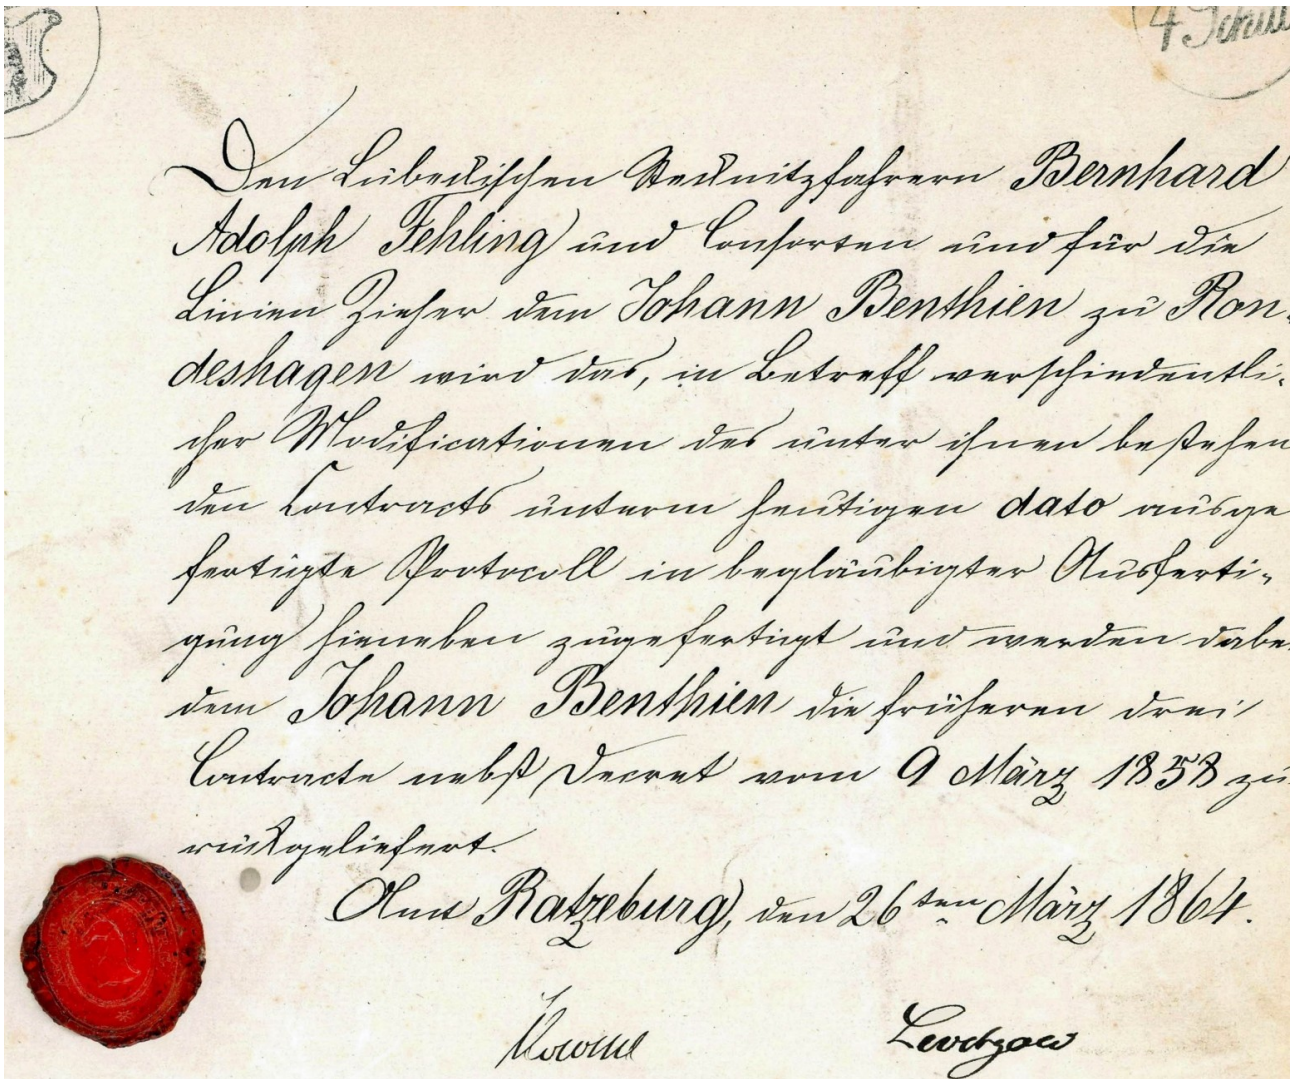 4 Schill
Den Lübeckischen Stecknitzfahrern Bernhard
Adolph Fehling und Consorten und für die
Linien Zieher dem Johann Benthien zu Ron-
deshagen wird das, in Betreff verschiedentli-
cher Modificationen des unter ihnen bestehen
den Contracts unterm heutigen dato ausge
fertigte Protocoll in beglaubigter Ausferti-
gung hieneben zugefertigt und werden dabe
dem Johann Benthien die früheren drei
Contracte nebst Decret vom 9 März 1858 zu
rückgeliefert.
Amt Ratzeburg, den 26ten März 1864.
Levetzow